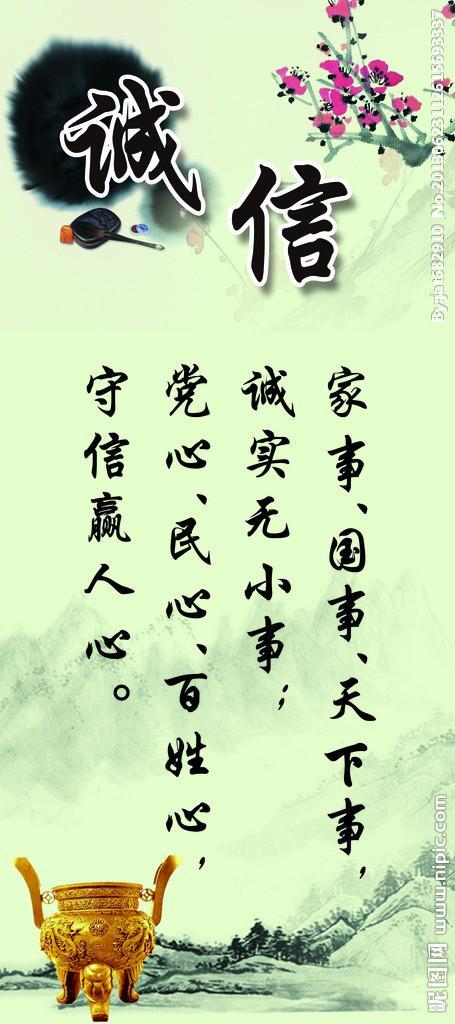 诚信
家事、国事、天下事，
诚实无小事；
党心、民心、百姓心，
守信赢人心。
昵图网 www.nipic.com